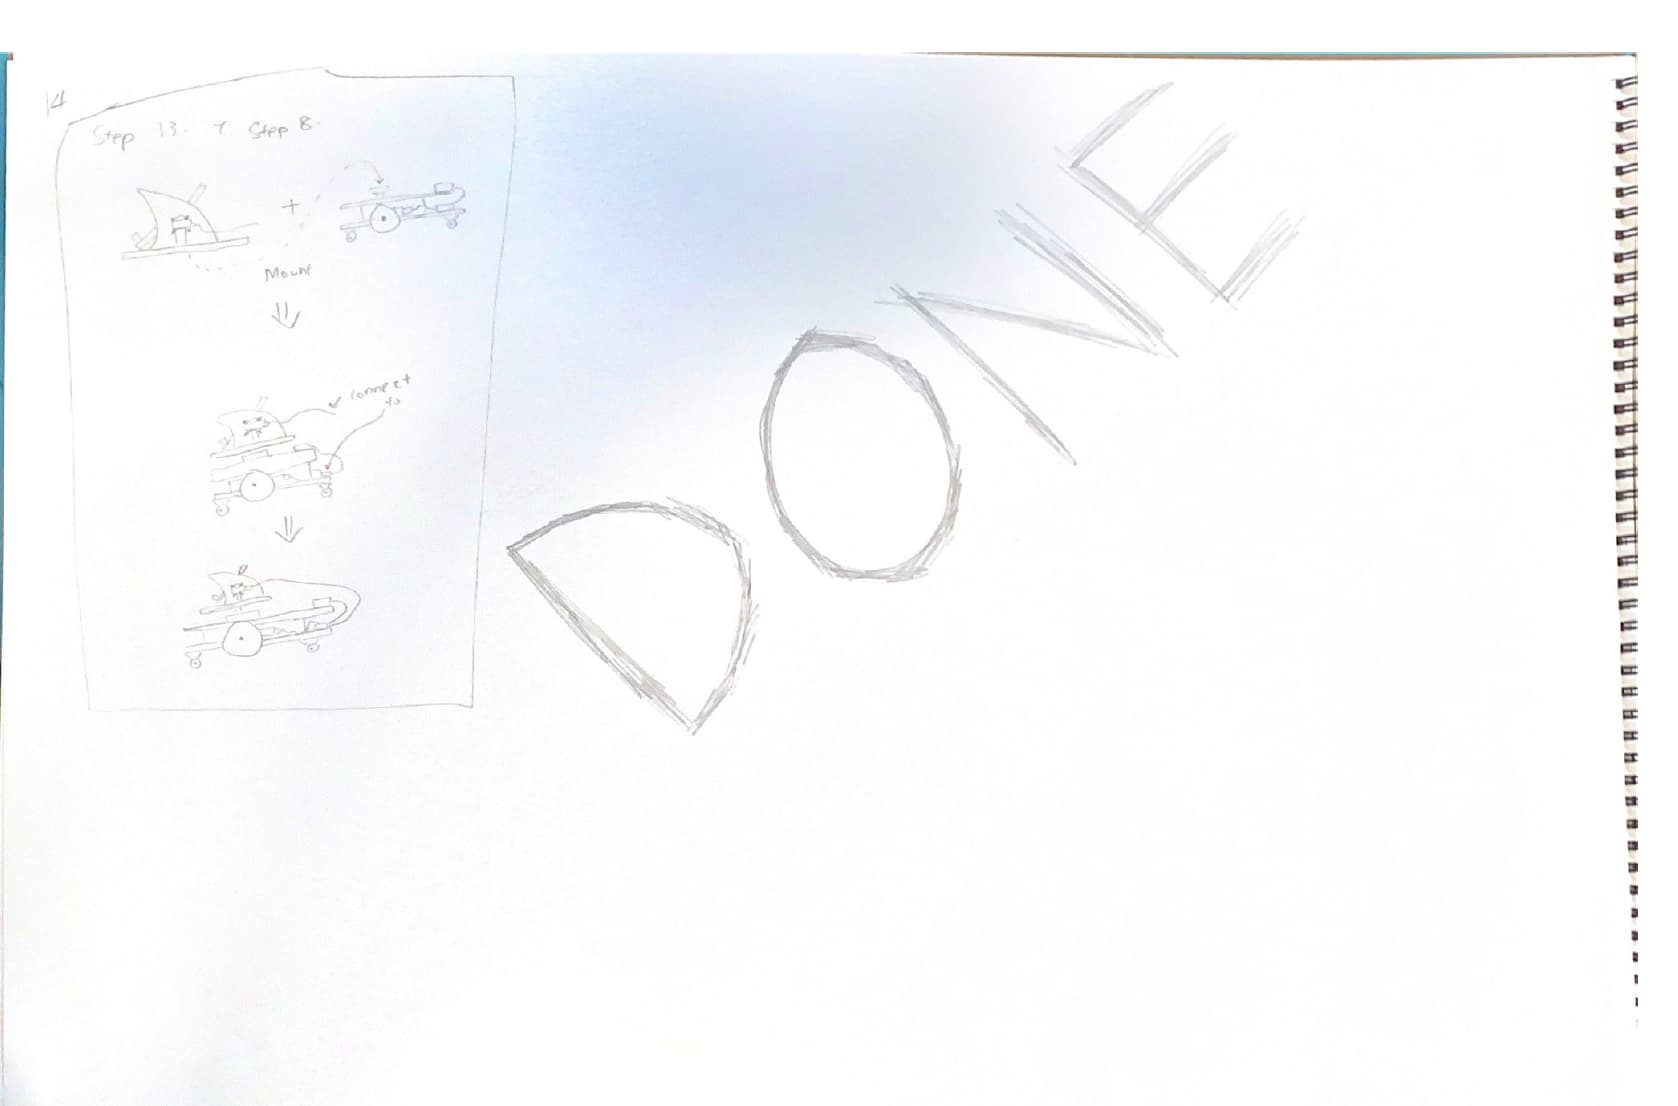 14
Step 13. + Step 8.
+
Mount
connect
to
DONE